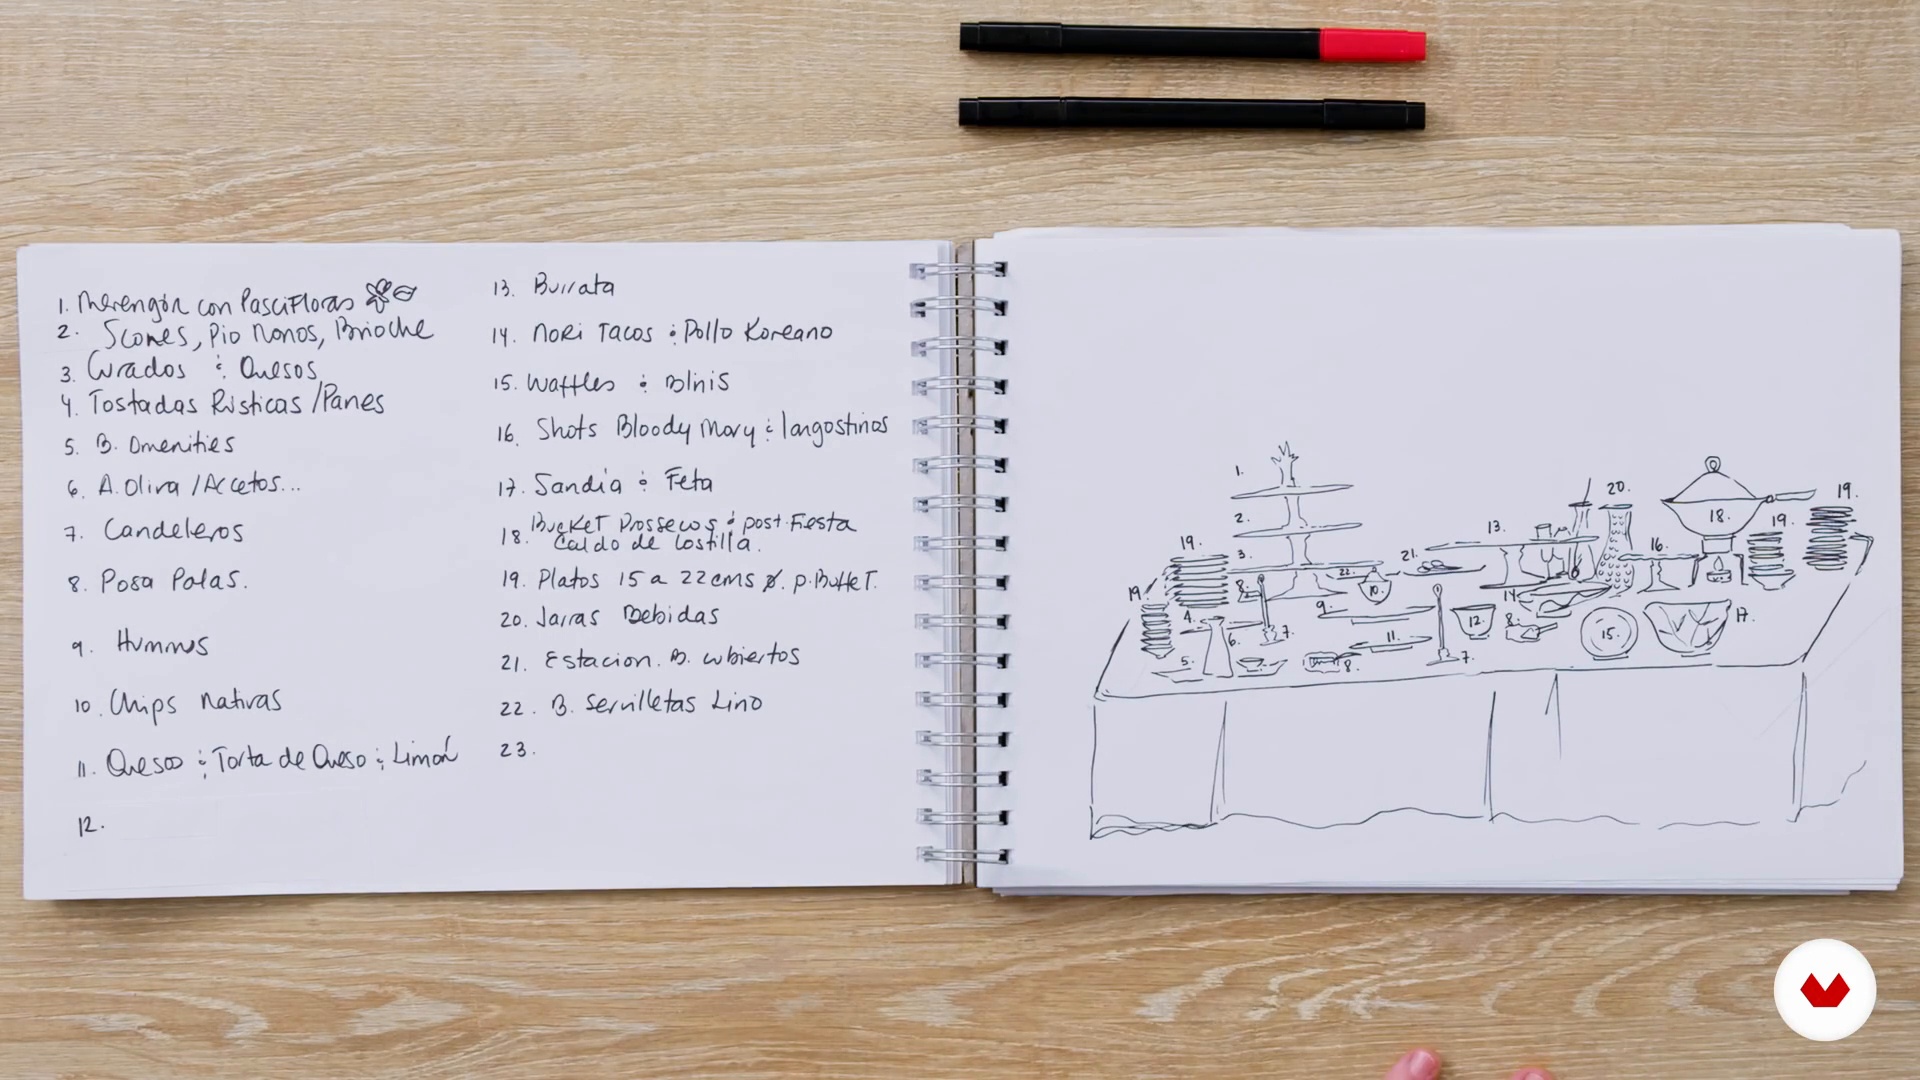 1. Merengón con Pascifloras
2. Scones, Pio Nonos, Brioche
3. Curados & Quesos
4. Tostadas Rusticas / Panes
5. B. Amenities
6. A. Oliva / Accetos...
7. Candeleros
8. Posa Palas.
9. Hummus
10. Chips Nativas
11. Quesos & Torta de Queso & Limón
12.
13. Burrata
14. Nori Tacos & Pollo Koreano
15. Waffles & Blinis
16. Shots Bloody Mary & langostinos
17. Sandia & Feta
18. Bucket Prossecos & post-Fiesta
Caldo de Costilla.
19. Platos 15 a 22 cms Ø. p. Buffet.
20. Jarras Bebidas
21. Estacion. B. cubiertos
22. B. Servilletas Lino
23.
1.
2.
3.
19.
19.
8.
4.
5.
6.
7.
22.
10.
9.
11.
8.
21.
7.
12.
8.
13.
14.
15.
20.
16.
17.
18.
19.
19.